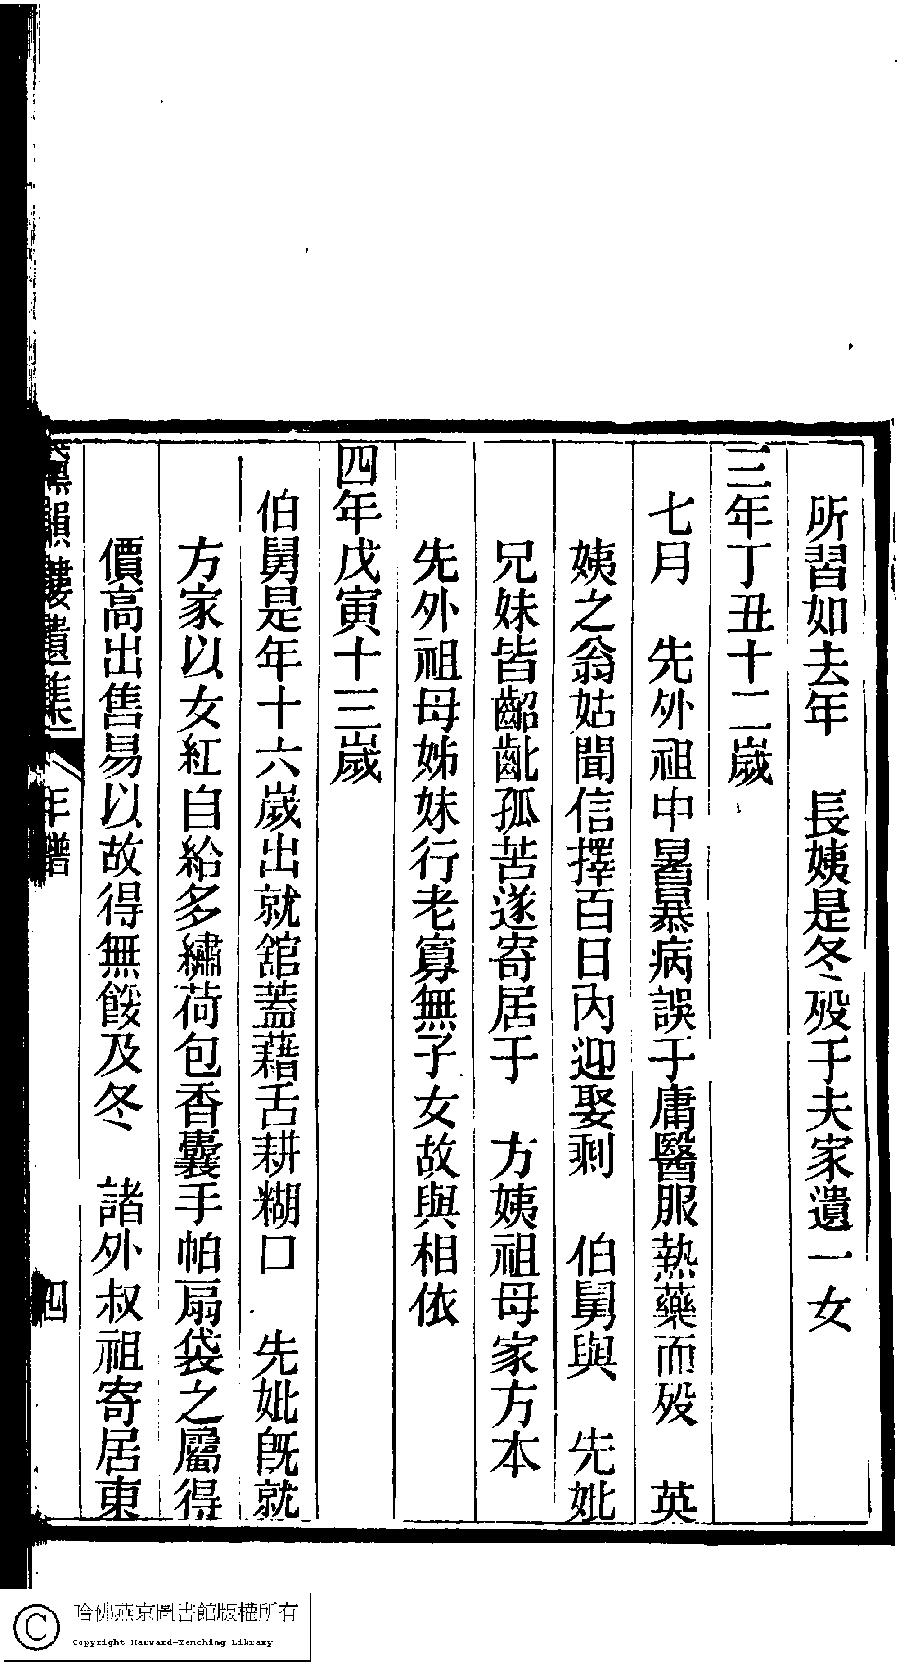 所習如去年　長姨是冬歿于夫家遺一女
三年丁丑十二嵗
七月　先外祖中暑暴病誤于庸醫服熱藥而歿　英
姨之翁姑聞信擇百日內迎娶剩　伯舅與　先妣
兄妹皆齠齔孤苦遂寄居于　方姨祖母家方本
先外祖母姊妹行老寡無子女故與相依
四年戊寅十三嵗
伯舅是年十六嵗出就舘蓋藉舌耕糊口　先妣旣就
方家以女紅自給多繡荷包香囊手帕扇袋之屬得
價高出售易以故得無餒及冬　諸外叔祖寄居東
韻樓遺集　年譜　四
哈佛燕京圖書館版權所有
Copyright Harvard-Yenching Library